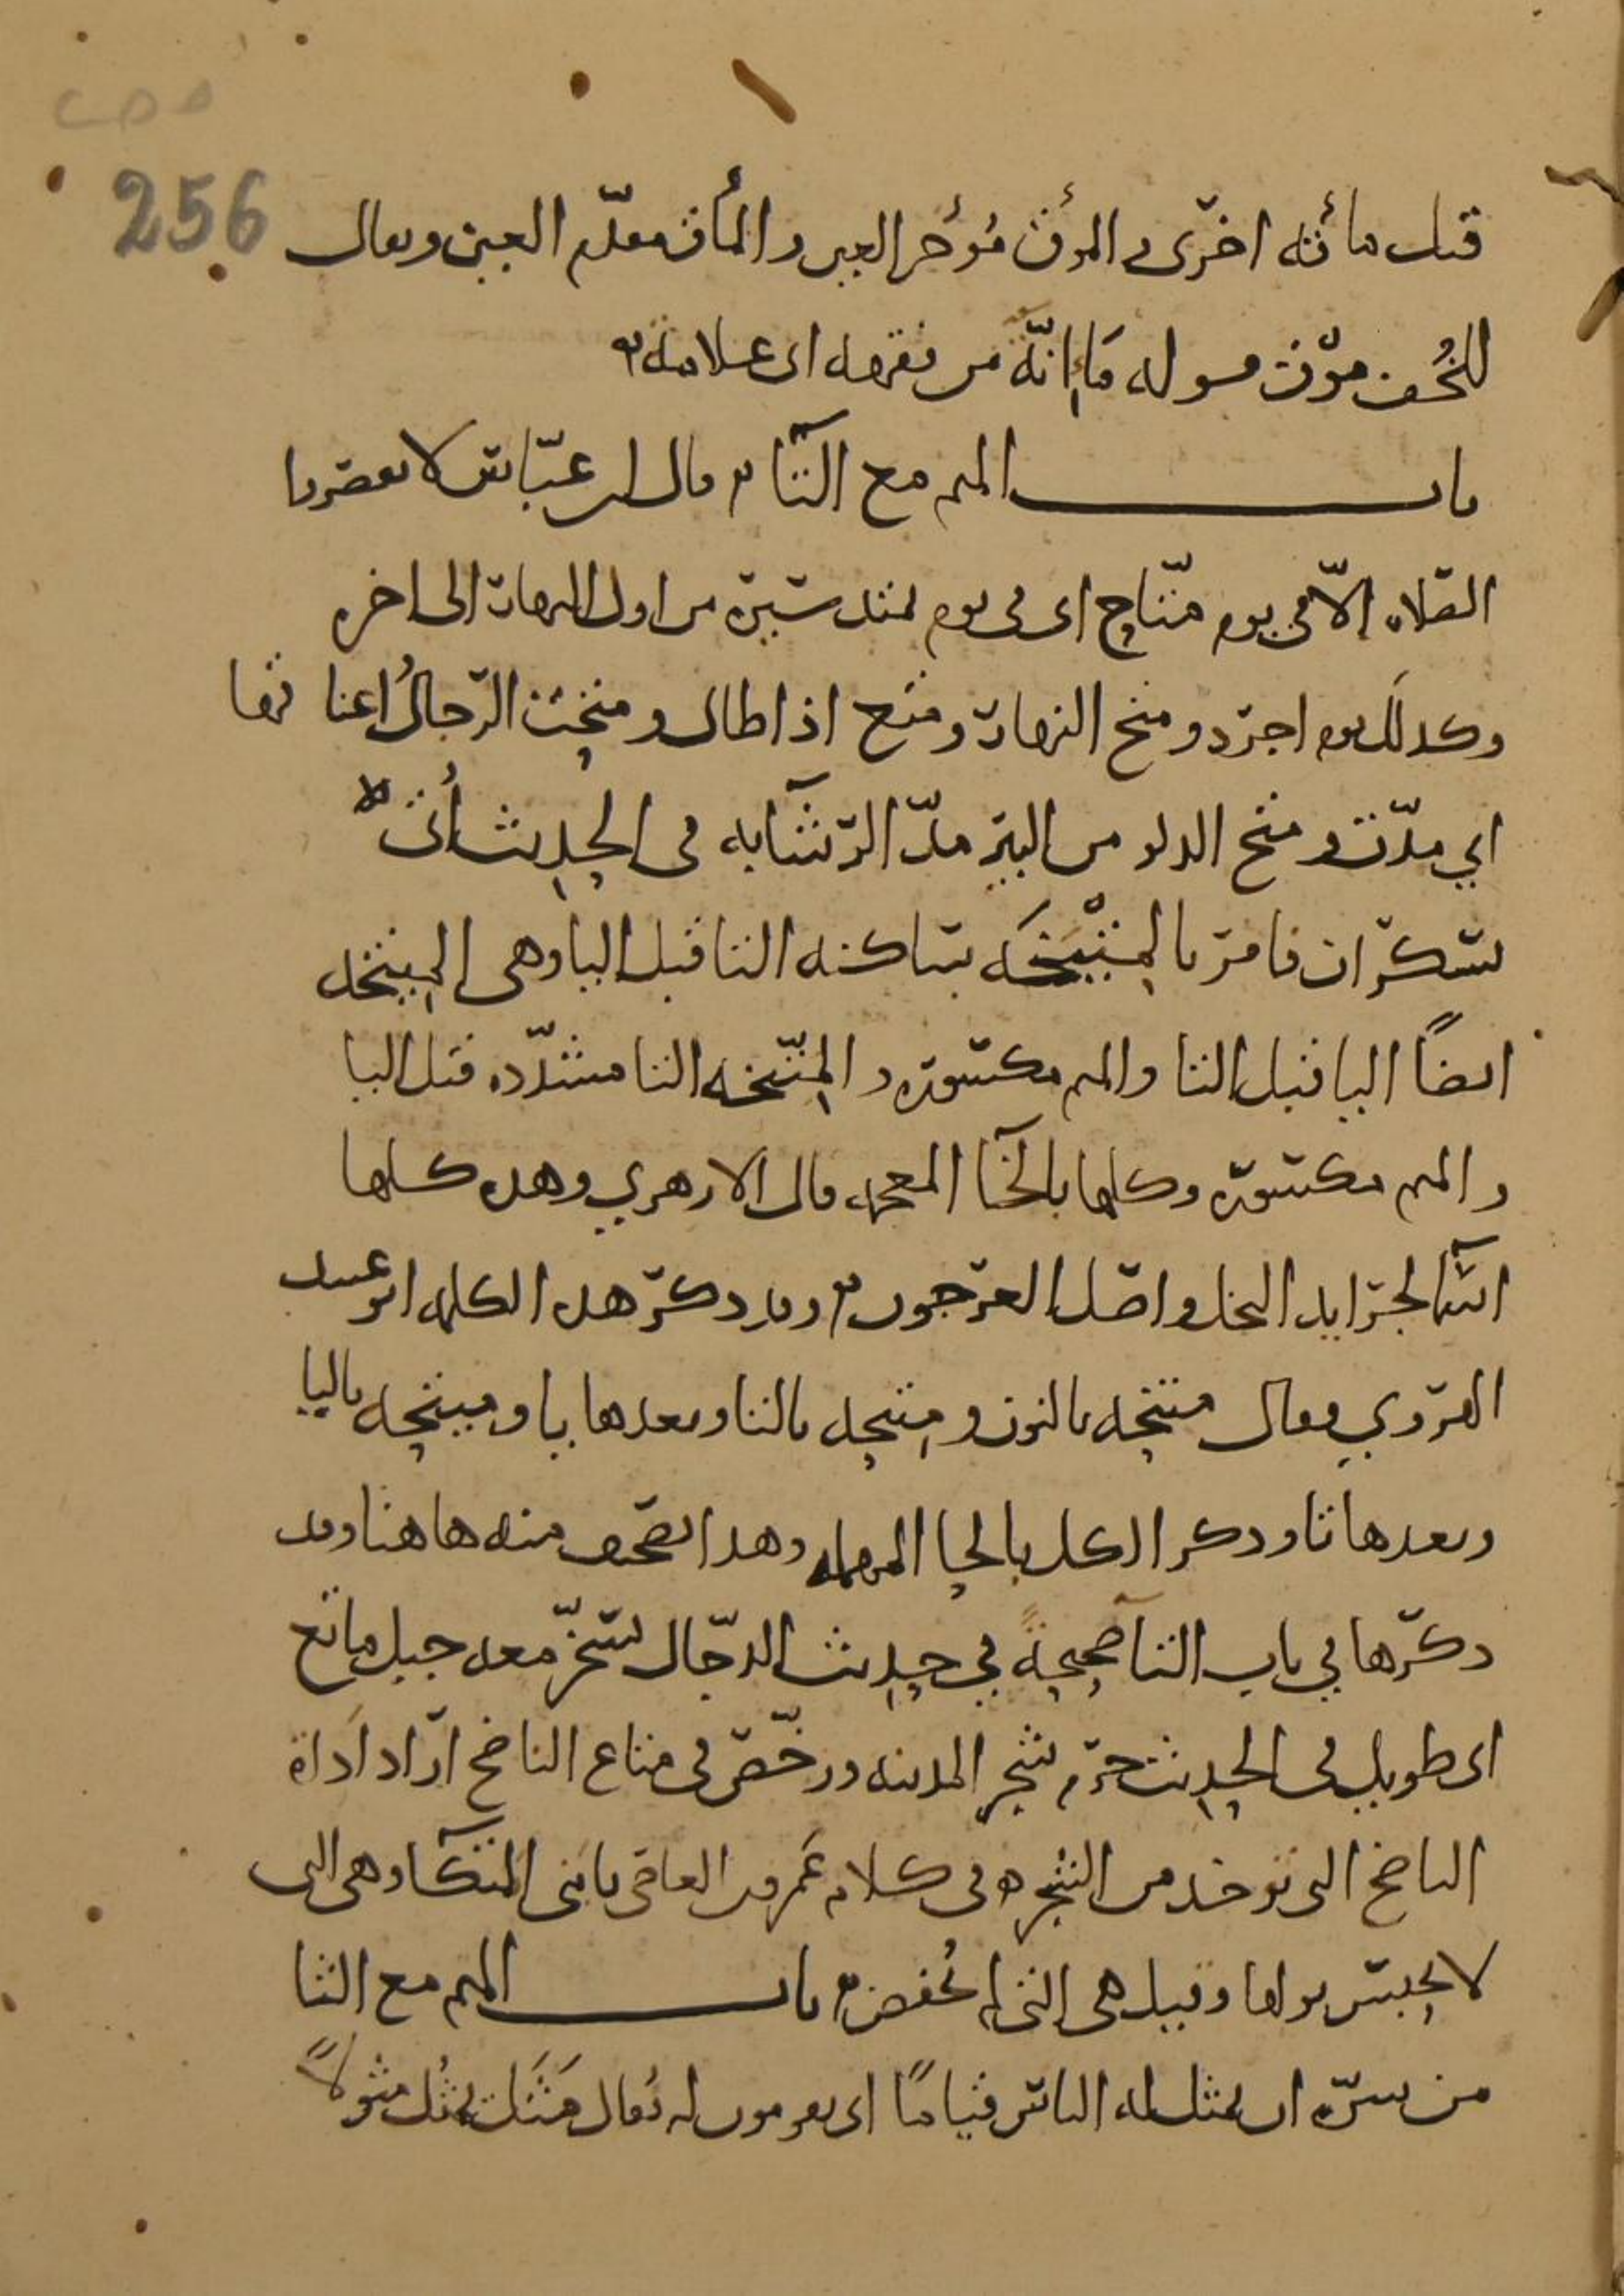 256
قبل مأقه اخرى والمؤق مؤخر العين والمأق مقدّم العين ويقال
للخُف موق قوله مَإِنّة من فقهه اى علامة
باب الميم مع التا قال ابن عبّاس لا تقصروا
الصّلاه الّا فى يوم متّاح اى فى يوم يمتد سيره من اول النهار الى اخره
وكذلك يوم اجرد ومتح النهار ومتع اذا طال ومتحت الرّجالُ اعناقها
اي مدّت ومتح الدلو من البير مدّ الرّشا به فى الحديث أُتى
بسكران فامر بالمِتْيَخَه ساكنه التا قبل اليا وهى المِيتخه
ايضًا اليا قبل التا والميم مكسوره والمِتّيخه التا مشدّده قبل اليا
والميم مكسوره وكلها بالخا المعجمه قال الازهري وهذه كلها
اسما لجرايد النخل واصل العرجون وقد ذكر هذه الكلمه ابو عبيد
الهروي فقال متنخه بالنون ومتيحه بالتا وبعدها يا وميتحه باليا
وبعدها تا وذكر الكل بالحا المهمله وهذا تصحيف منه هاهنا وقد
ذكرها في باب التا صحيحةً في حديث الدجّال يُسخّر معه جبل ماتع
اى طويل فى الحديث حرّم شجر المدينه ورخّص فى متاع الناضح اراد اداة
الناضح التى توخذ من الشجره فى كلام عَمرو بن العاص يابنى المتكا وهى التى
لا تحبس بولها وقيل هى التى لم تُخفض باب الميم مع الثا
من سرّه ان يمثل له الناس قيامًا اى يقومون له يُقال مَثَل يمثُل مثولًا